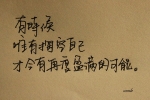 有时候
唯有掏空自己
才会有再度盈满的可能。